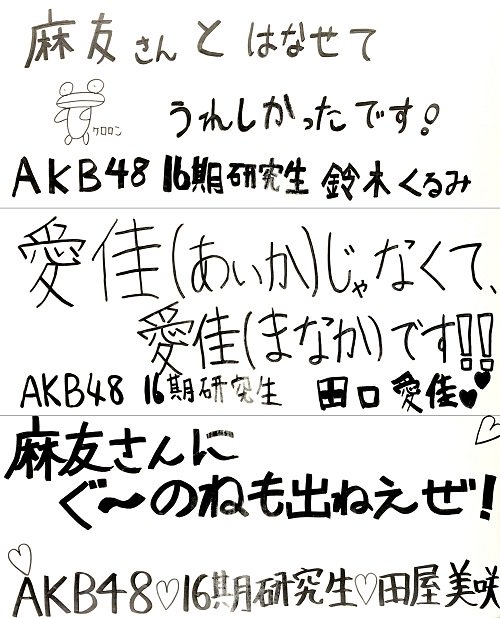 麻友さんとはなせて
ケロロン
うれしかったです!
AKB48 16期研究生 鈴木くるみ
愛佳(あいか)じゃなくて、
愛佳(まなか)です!!
AKB48 16期研究生 田口愛佳
麻友さんに
ぐ〜のねも出ねえぜ!
AKB48♡16期研究生♡田屋美咲